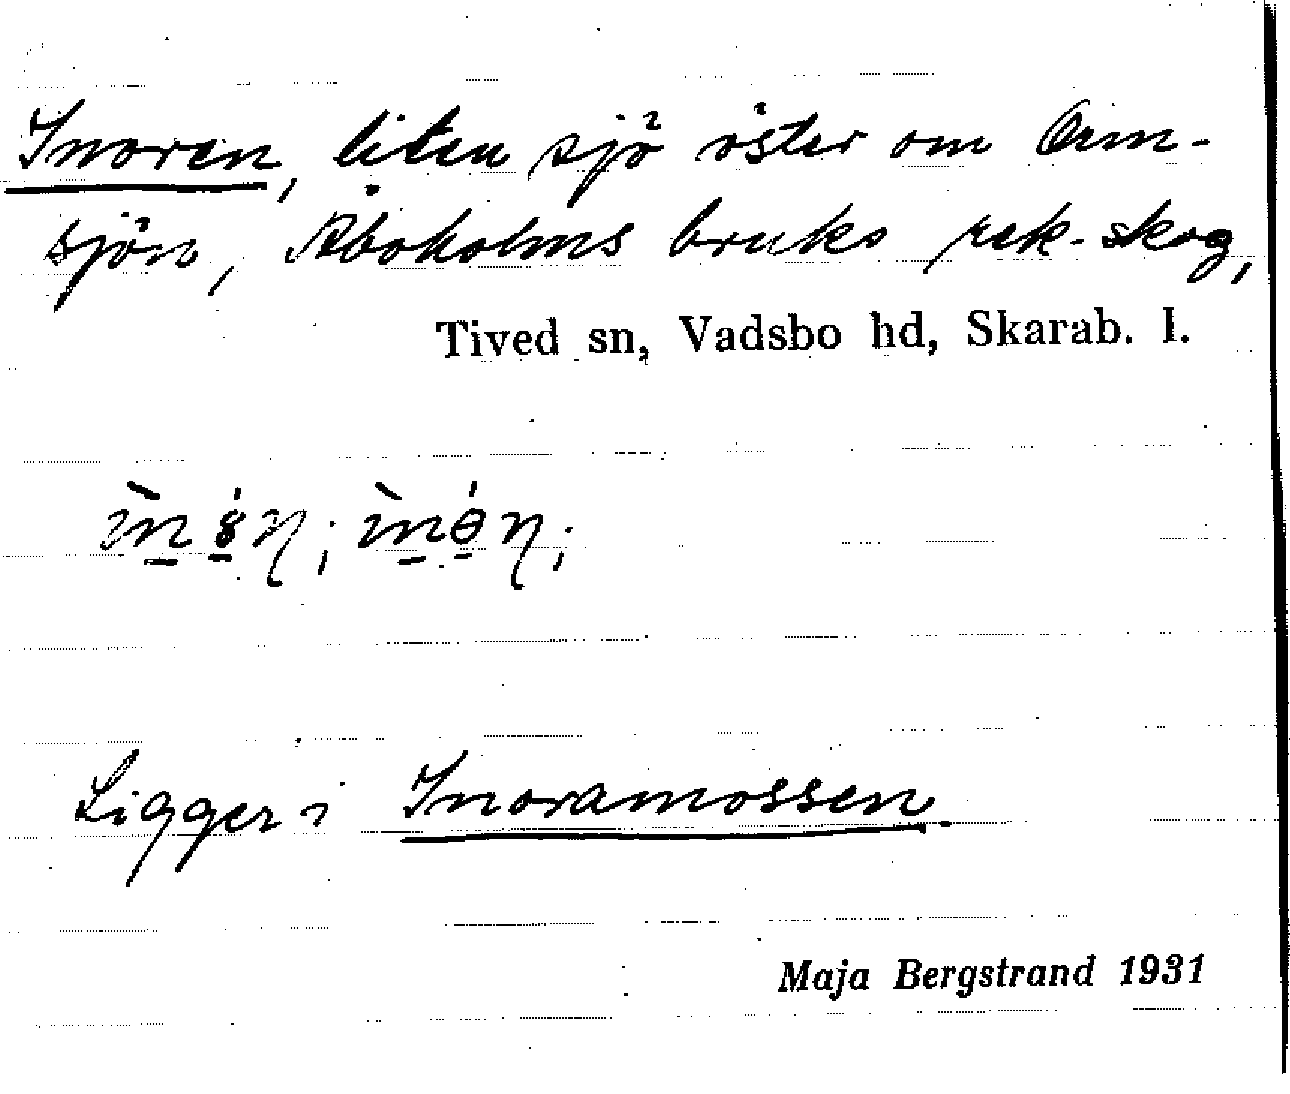 Inoren, liten sjö öster om Örn-
sjön, Aboholms bruks rek. skog,
Tived sn, Vadsbo hd, Skarab. l.
Ligger i Inoramossen.
Maja Bergstrand 1931